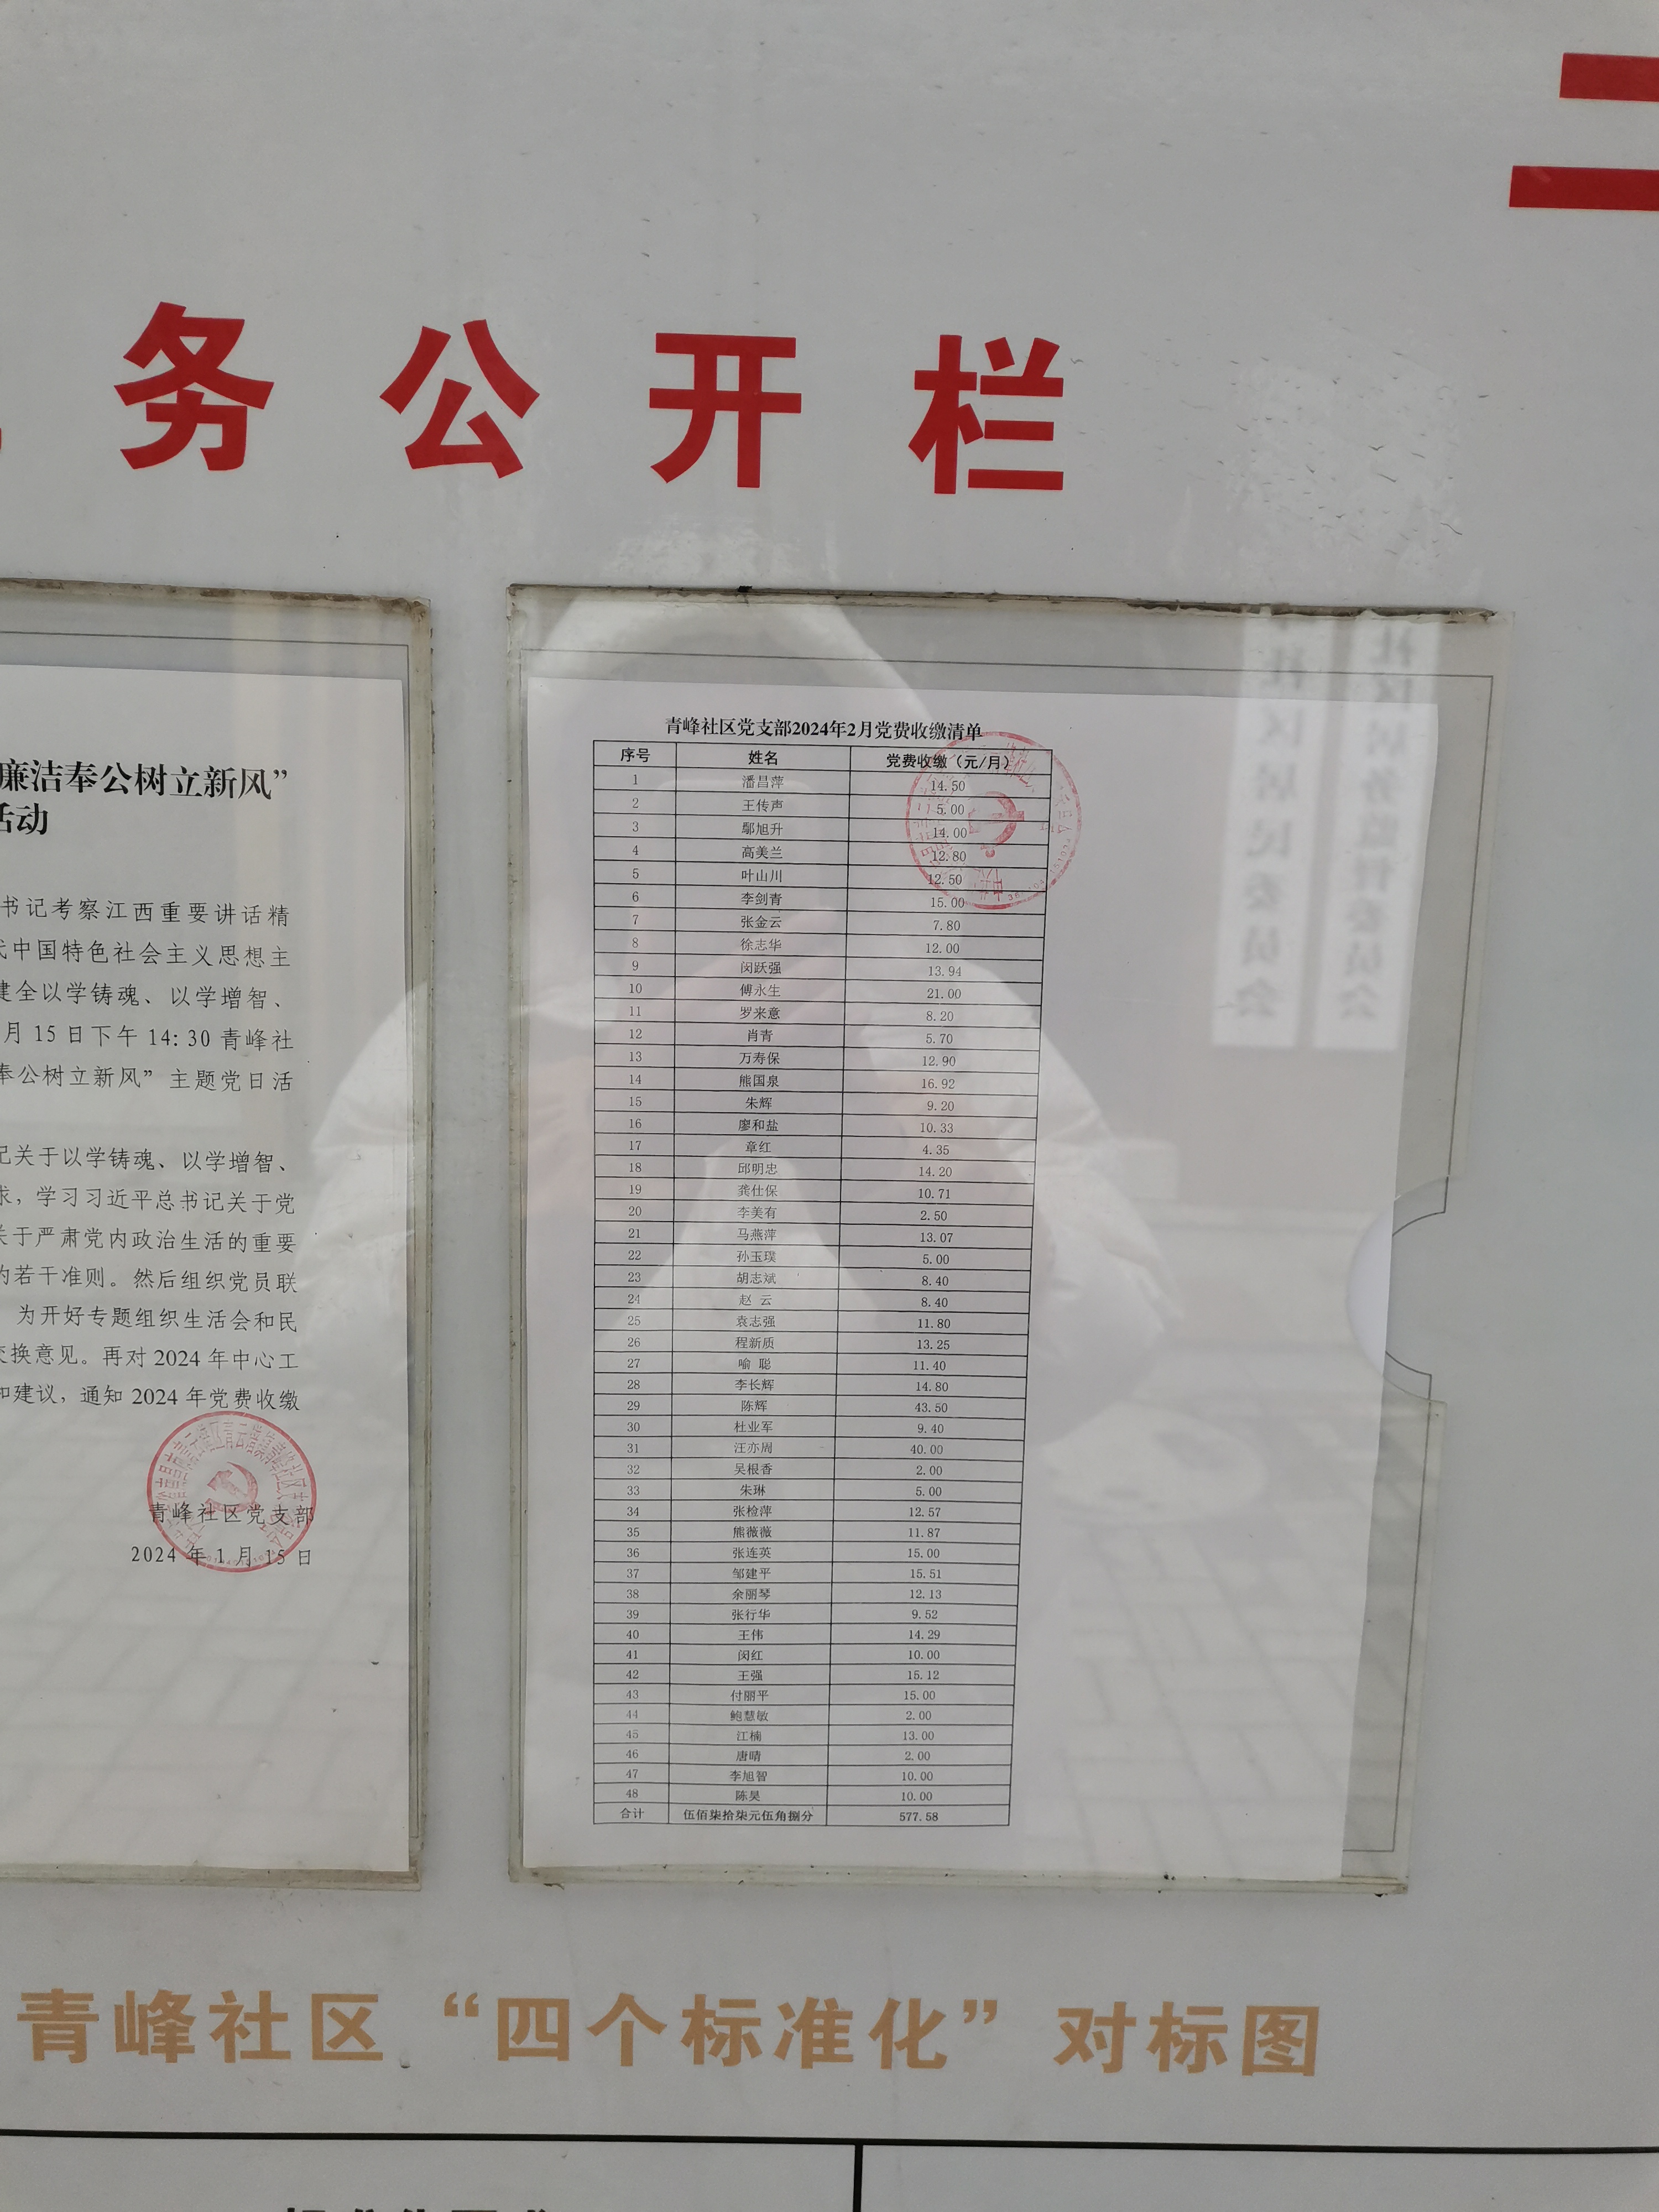 务公开栏
廉洁奉公树立新风”
活动
书记考察江西重要讲话精
代中国特色社会主义思想主
建全以学铸魂、以学增智、
月15日下午14:30青峰社
奉公树立新风”主题党日活
记关于以学铸魂、以学增智、
求，学习习近平总书记关于党
关于严肃党内政治生活的重要
的若干准则。然后组织党员联
为开好专题组织生活会和民
交换意见。再对2024年中心工
和建议，通知2024年党费收缴
青峰社区党支部
2024年1月15日
青峰社区党支部2024年2月党费收缴清单
序号 姓名 党费收缴（元/月）
1 潘昌萍 14.50
2 王传声 5.00
3 鄢旭升 14.00
4 高美兰 12.80
5 叶山川 12.50
6 李剑青 15.00
7 张金云 7.80
8 徐志华 12.00
9 闵跃强 13.94
10 傅永生 21.00
11 罗来意 8.20
12 肖青 5.70
13 万寿保 12.90
14 熊国泉 16.92
15 朱辉 9.20
16 廖和盐 10.33
17 章红 4.35
18 邱明忠 14.20
19 龚仕保 10.71
20 李美有 2.50
21 马燕萍 13.07
22 孙玉璞 5.00
23 胡志斌 8.40
24 赵云 8.40
25 袁志强 11.80
26 程新质 13.25
27 喻聪 11.40
28 李长辉 14.80
29 陈辉 43.50
30 杜业军 9.40
31 汪亦周 40.00
32 吴根香 2.00
33 朱琳 5.00
34 张检萍 12.57
35 熊薇薇 11.87
36 张连英 15.00
37 邹建平 15.51
38 余丽琴 12.13
39 张行华 9.52
40 王伟 14.29
41 闵红 10.00
42 王强 15.12
43 付丽平 15.00
44 鲍慧敏 2.00
45 江楠 13.00
46 唐晴 2.00
47 李旭智 10.00
48 陈昊 10.00
合计 伍佰柒拾柒元伍角捌分 577.58
青峰社区“四个标准化”对标图